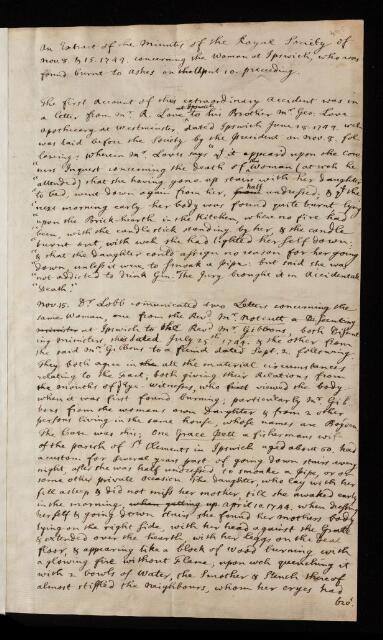 An Extract of the Minutes of the Royal Society of
Nov. 8 & 15. 1744. concerning the Woman at Ipswich, who was
found burnt to ashes on the 10. preceding.
The first account of this extraordinary accident was in
a letter from Mr. R. Love at Ipswich to his Brother Mr. Geo. Love
Apothecary at Westminster, dated Ipswich June 28. 1744. wch
was laid before the Society by the President on Nov. 8. fol-
lowing: wherein Mr. Love says "yt it appeared upon the Coro-
"ners Inquest concerning the death of the woman (at wch he
"attended) that she having gone up stairs with her daughter
"to bed, went down again from her, half undressed; & yt the
"next morning early her body was found quite burnt lying
"upon the Brick-hearth in the Kitchen, where no fire had
"been, with the candlestick standing by her, & the candle
"burnt out, with wch she had lighted her self down;
"& that the daughter could assign no reason for her going
"down, unless it were to smoak a pipe: but said she was
"not addicted to drink Gin. The Jury brought it in Accidental
"Death."
Nov. 15. Dr. Lobb communicated two Letters concerning the
same Woman, one from the Revd. Mr. Notcutt a Dissenting
minister at Ipswich to the Revd. Mr. Gibbons, both Dissent-
ing ministers, dated July 25th. 1744. & the other from
the said Mr. Gibbons to a friend dated Sept. 2. following.
They both agree in all the material circumstances
relating to the Fact, both giving their Relations from
the mouths of Eye-witnesses, who viewed the body
when it was first found burning; particularly Mr. Gib-
bons from the womans own Daughter & from 2 other
persons living in the same house, whose names are Boyden.
The Case was this. One Grace Pett a fishermans wife
of the parish of St. Clements in Ipswich aged about 60, had
a custom for several years past of going down stairs every
night, after she was half undressed, to smoake a pipe, or on
some other private occasion. The daughter, who lay with her
fell asleep & did not miss her mother, till she awaked early
in the morning, when getting up April 10. 1744. when dressing
herself, & going down stairs, she found her mothers body
lying on the right side, with her head against the Grate
& extended over the hearth, with her leggs on the Deal
floor, & appearing like a block of wood burning with
a glowing fire without Flame; upon wch quenching it
with 2 bowls of Water, the Smother & Stench thereof
almost stiffled the Neighbours, whom her cryes had
bro.